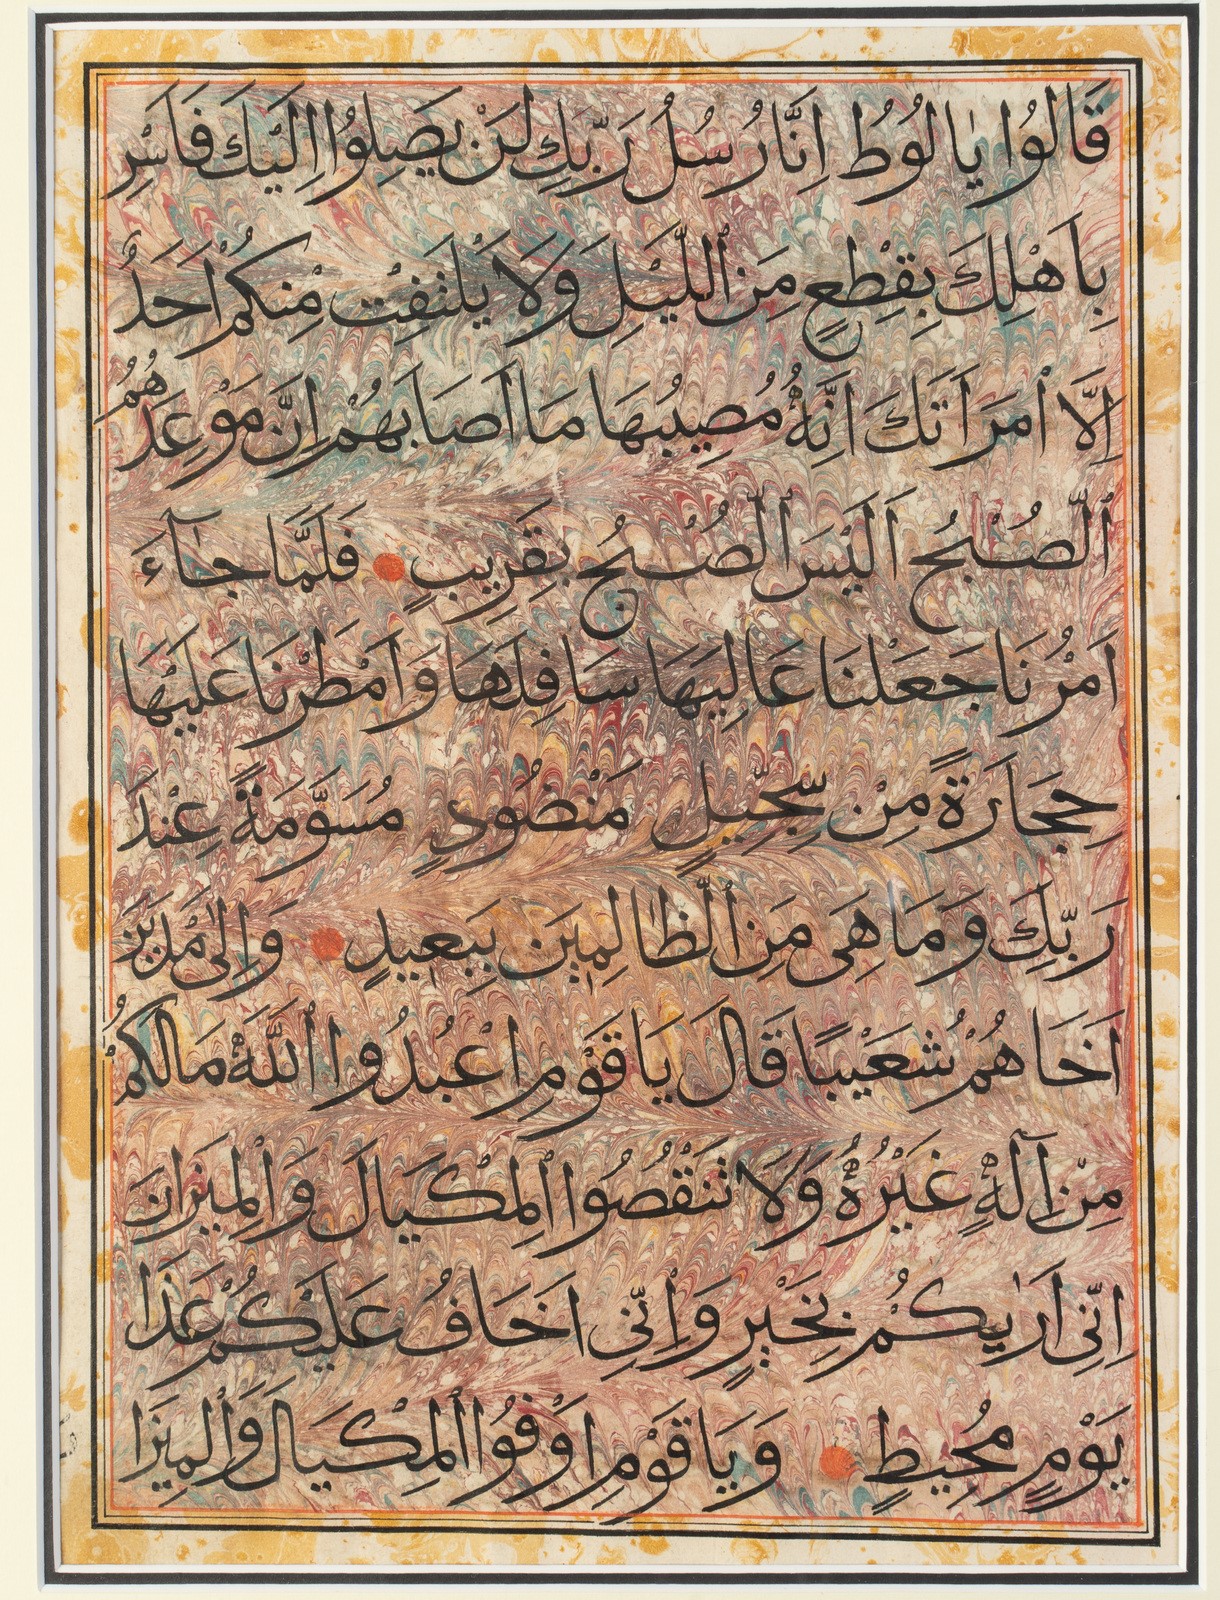 قَالُوا يَا لُوطُ اِنَّا رُسُلُ رَبِّكَ لَنْ يَصِلُوا اِلَيْكَ فَاَسْرِ
بِاَهْلِكَ بِقِطْعٍ مِنَ ٱللَّيْلِ وَلَا يَلْتَفِتْ مِنْكُمْ اَحَدٌ
اِلَّا ٱمْرَاَتَكَ اِنَّهُ مُصِيبُهَا مَا اَصَابَهُمْ اِنَّ مَوْعِدَهُمُ
ٱلصُّبْحُ اَلَيْسَ ٱلصُّبْحُ بِقَرِيبٍ فَلَمَّا جَآءَ
اَمْرُنَا جَعَلْنَا عَالِيَهَا سَافِلَهَا وَاَمْطَرْنَا عَلَيْهَا
حِجَارَةً مِنْ سِجِّيلٍ مَنْضُودٍ مُسَوَّمَةً عِنْدَ
رَبِّكَ وَمَا هِىَ مِنَ ٱلظَّالِمِينَ بِبَعِيدٍ وَاِلٰى مَدْيَنَ
اَخَاهُمْ شُعَيْبًا قَالَ يَا قَوْمِ اعْبُدُوا ٱللّٰهَ مَا لَكُمْ
مِنْ اِلٰهٍ غَيْرُهُ وَلَا تَنْقُصُوا ٱلْمِكْيَالَ وَٱلْمِيزَانَ
اِنِّى اَرٰيكُمْ بِخَيْرٍ وَاِنِّى اَخَافُ عَلَيْكُمْ عَذَا
يَوْمٍ مُحِيطٍ وَيَا قَوْمِ اَوْفُوا ٱلْمِكْيَالَ وَٱلْمِيزَا